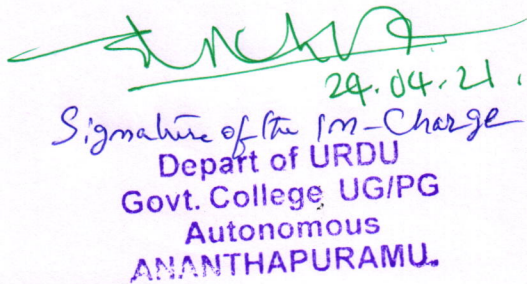 24.04.21.
Signature of the In-Charge
Depart of URDU
Govt. College UG/PG
Autonomous
ANANTHAPURAMU.